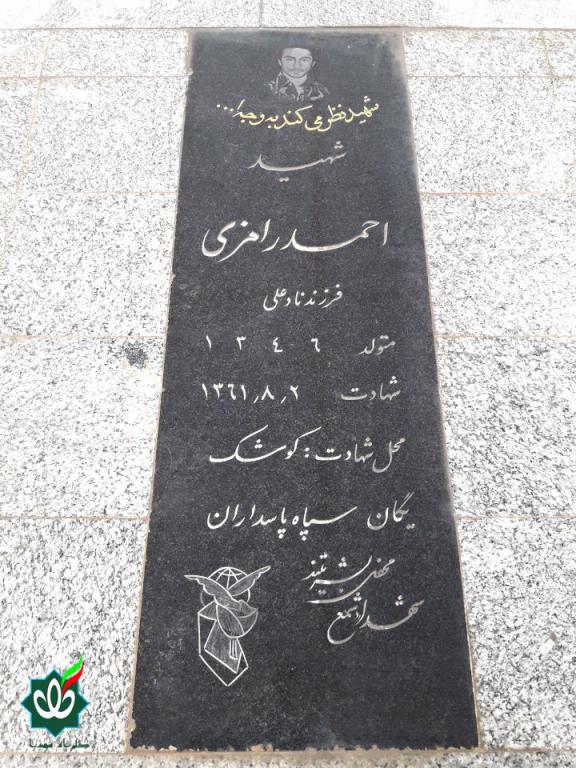 شهید نظر می کند به وجه ا...
شهید
احمد رامزی
فرزند ناد علی
متولد ١٣٤٦
شهادت ١٣٦١٫٨٫٢
محل شهادت : کوشک
یگان سپاه پاسداران
شهدا شمع
محفل بشریتند